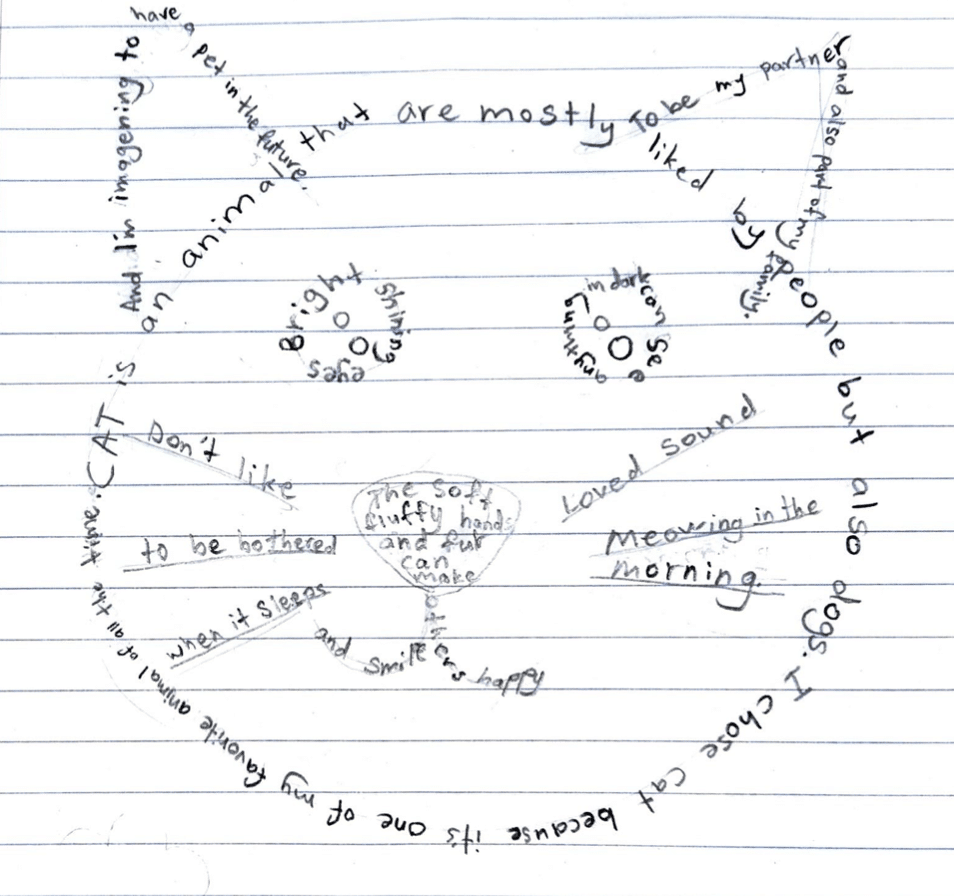 CAT is an animal that are mostly liked by people but also dogs. I chose cat because it's one of my favorite animal of all the time.
And I'm imaggening to have a pet in the future.
To be my partner and also part of my family.
Bright shining eyes
can see anything in dark
Don't like
to be bothered
when it sleeps
The soft
fluffy hands
and fur
can
make
others happy
and smile
Loved sound
Meowing in the
morning.